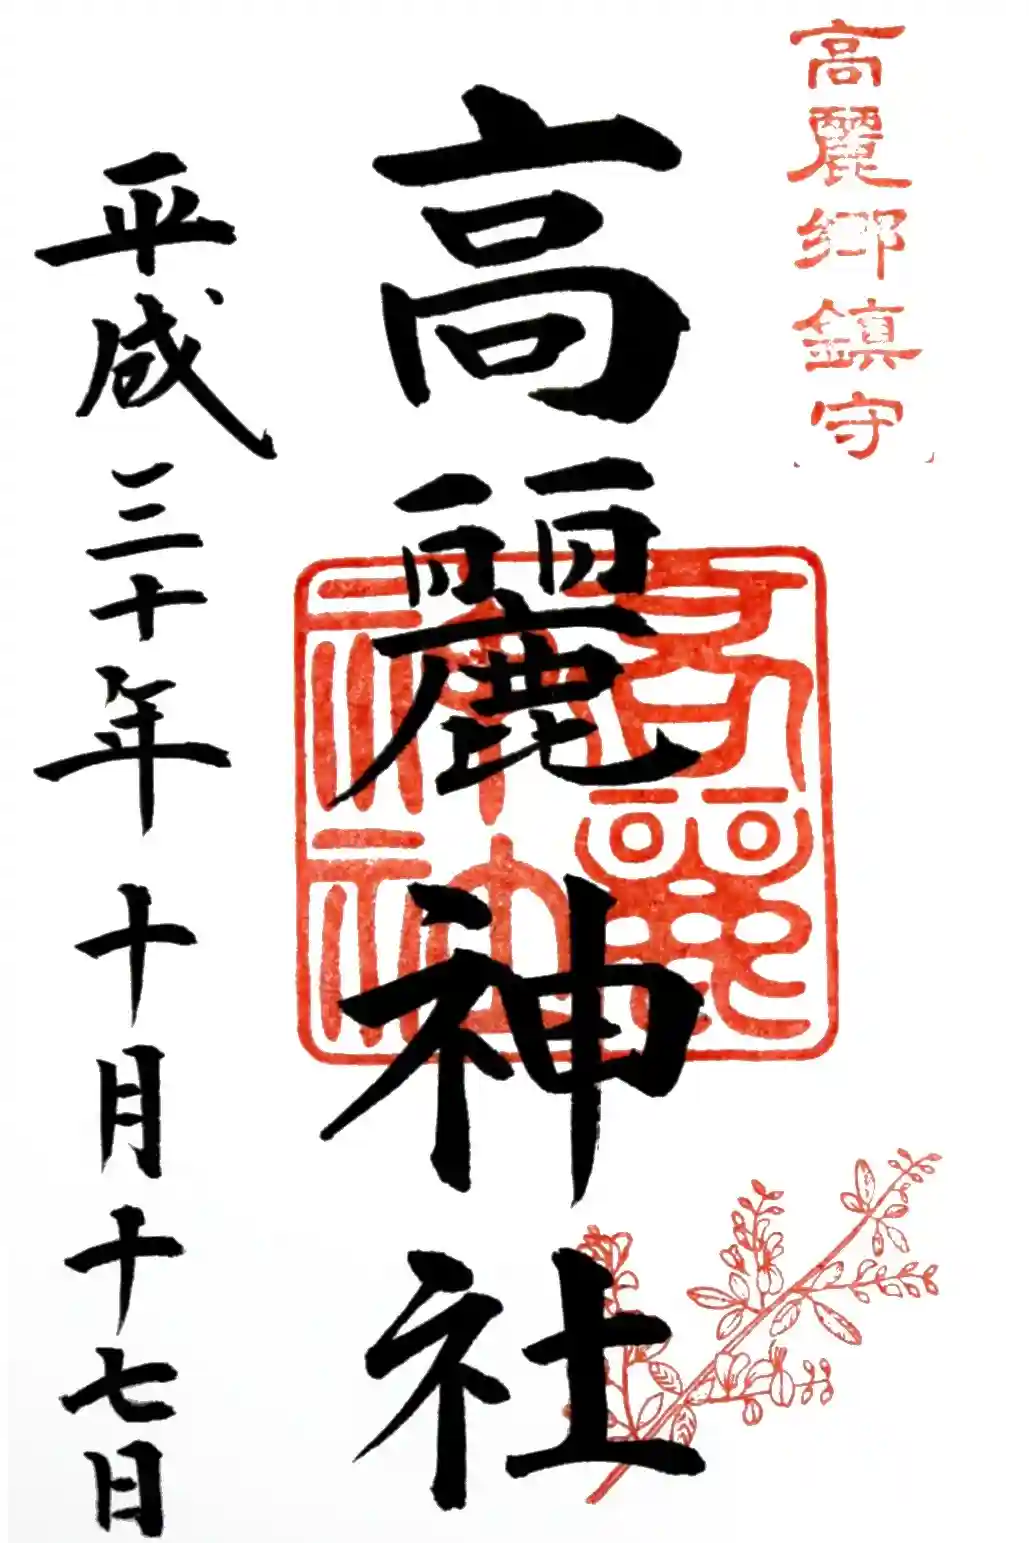 高麗郷鎮守
高麗神社
高麗
神社
平成三十年十月十七日